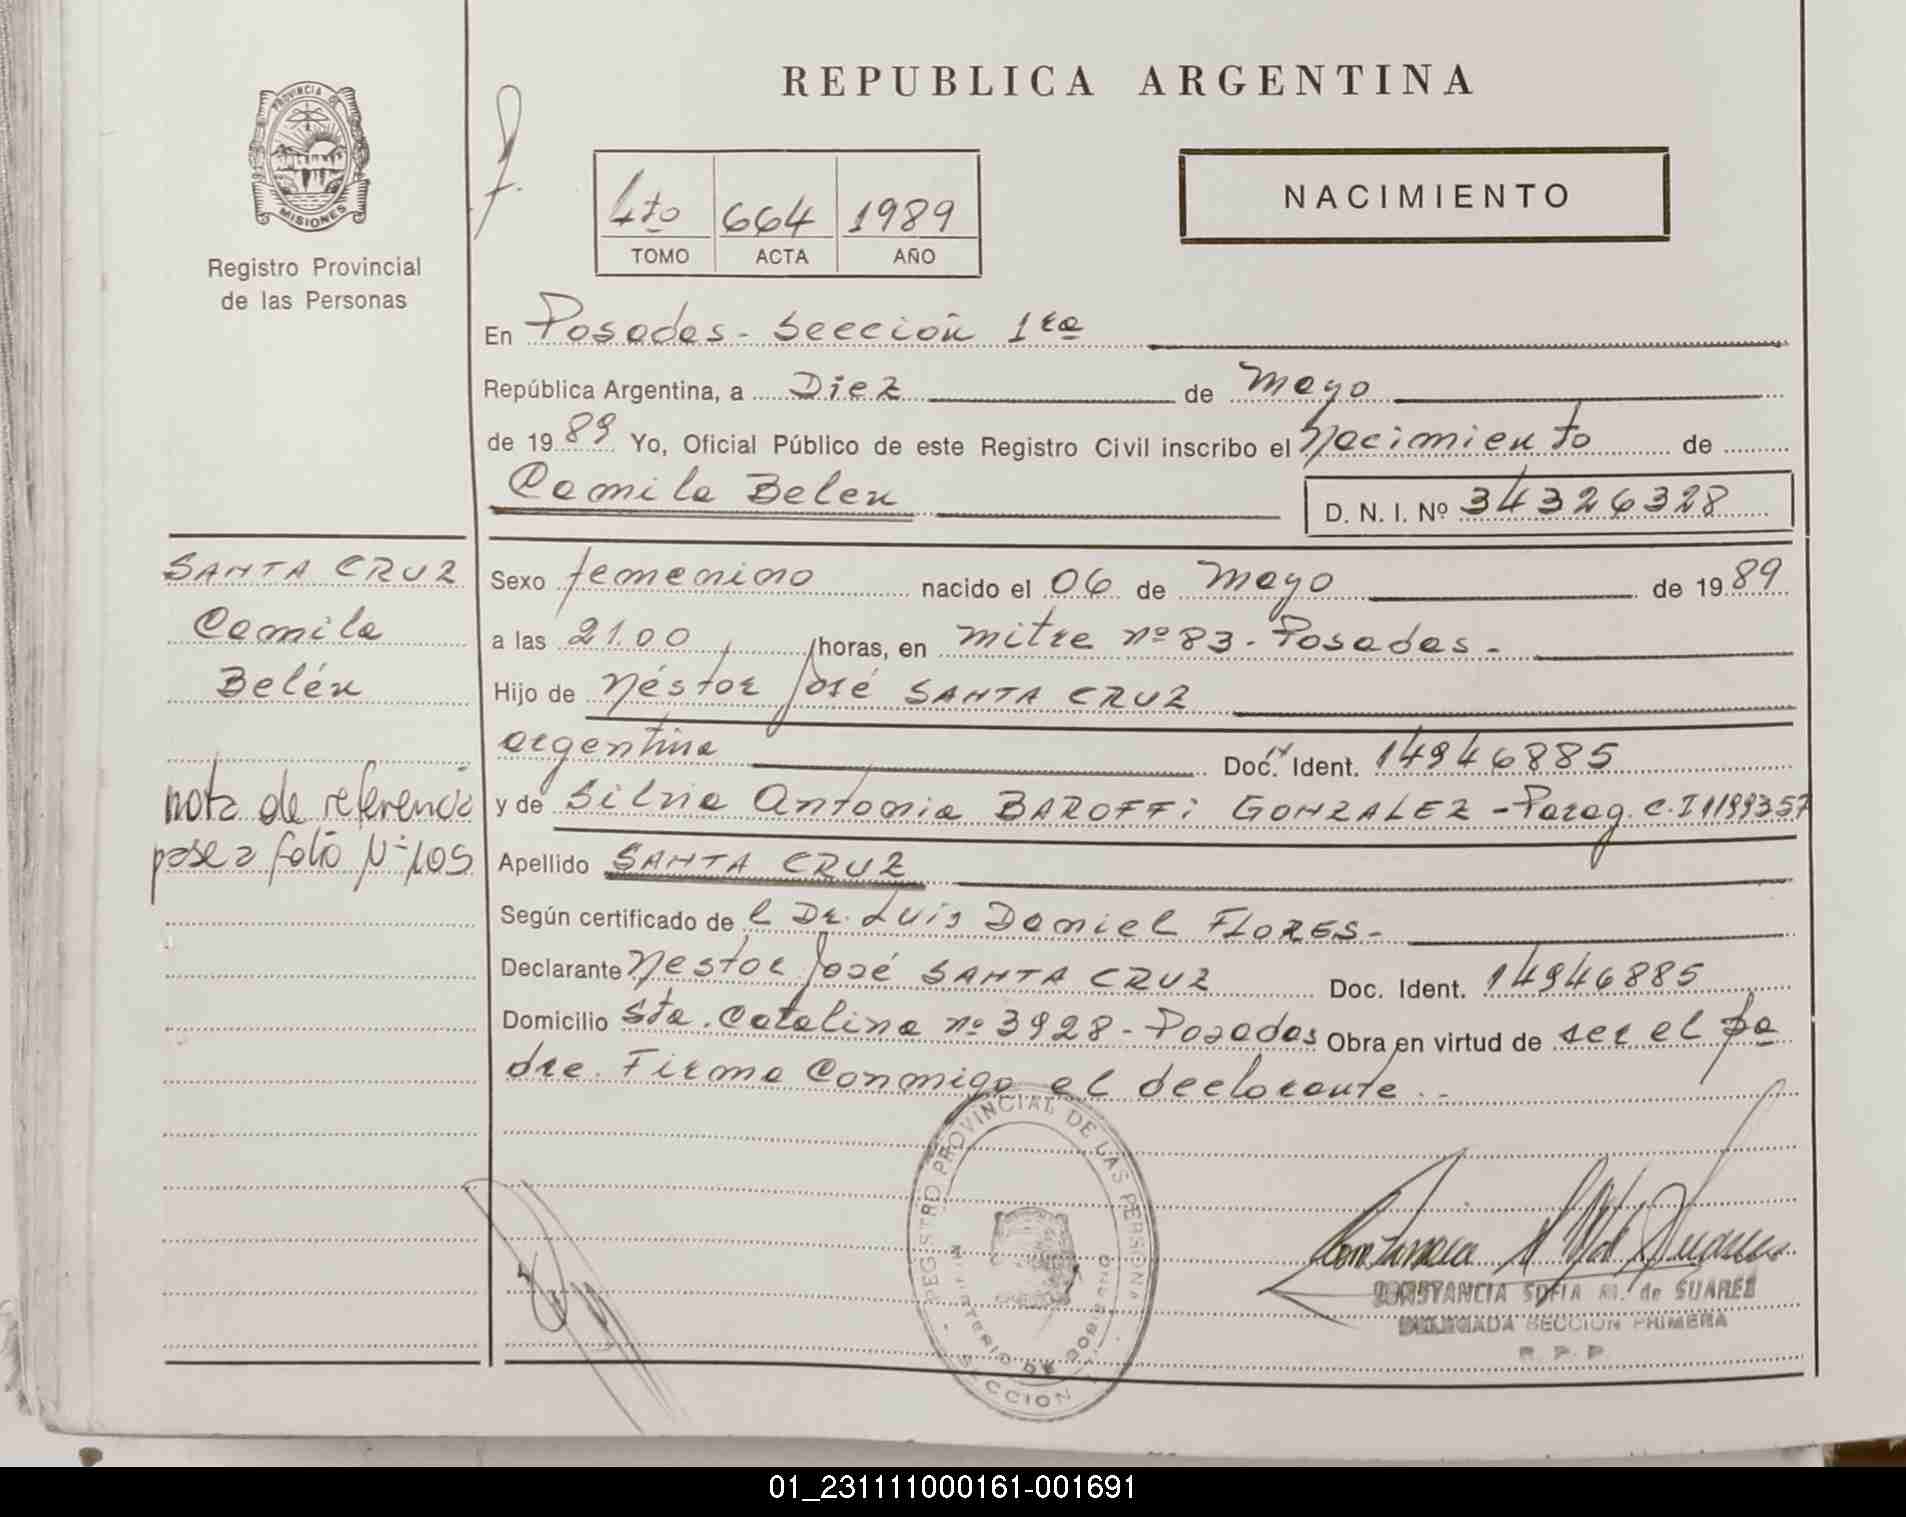 REPUBLICA ARGENTINA
PROVINCIA DE
MISIONES
Registro Provincial
de las Personas
4to 664 1989
TOMO ACTA AÑO
NACIMIENTO
En Posadas - Sección 1ra
República Argentina, a Diez de Mayo
de 1989 Yo, Oficial Público de este Registro Civil inscribo el Nacimiento de
Camila Belen D. N. I. Nº 34326328
SANTA CRUZ
Camila
Belén
nota de referencia
pase a folio Nº 105
Sexo femenino nacido el 06 de Mayo de 1989
a las 21.00 horas, en Mitre nº 83 - Posadas -
Hijo de Néstor José SANTA CRUZ
argentina Doc. Ident. 14946885
y de Silvia Antonia BAROFFi GONZALEZ - Parag. C.I 1199357
Apellido SANTA CRUZ
Según certificado de l Dr. Luis Daniel FLORES -
Declarante Nestor José SANTA CRUZ Doc. Ident. 14946885
Domicilio Sta. Catalina nº 3928 - Posadas Obra en virtud de ser el pa
dre. Firma Conmigo el declarante..
REGISTRO PROVINCIAL DE LAS PERSONAS
MINISTERIO DE GOBIERNO
SECCION
CONSTANCIA SOFIA M. de SUAREZ
DELEGADA SECCION PRIMERA
R. P. P.
01_231111000161-001691